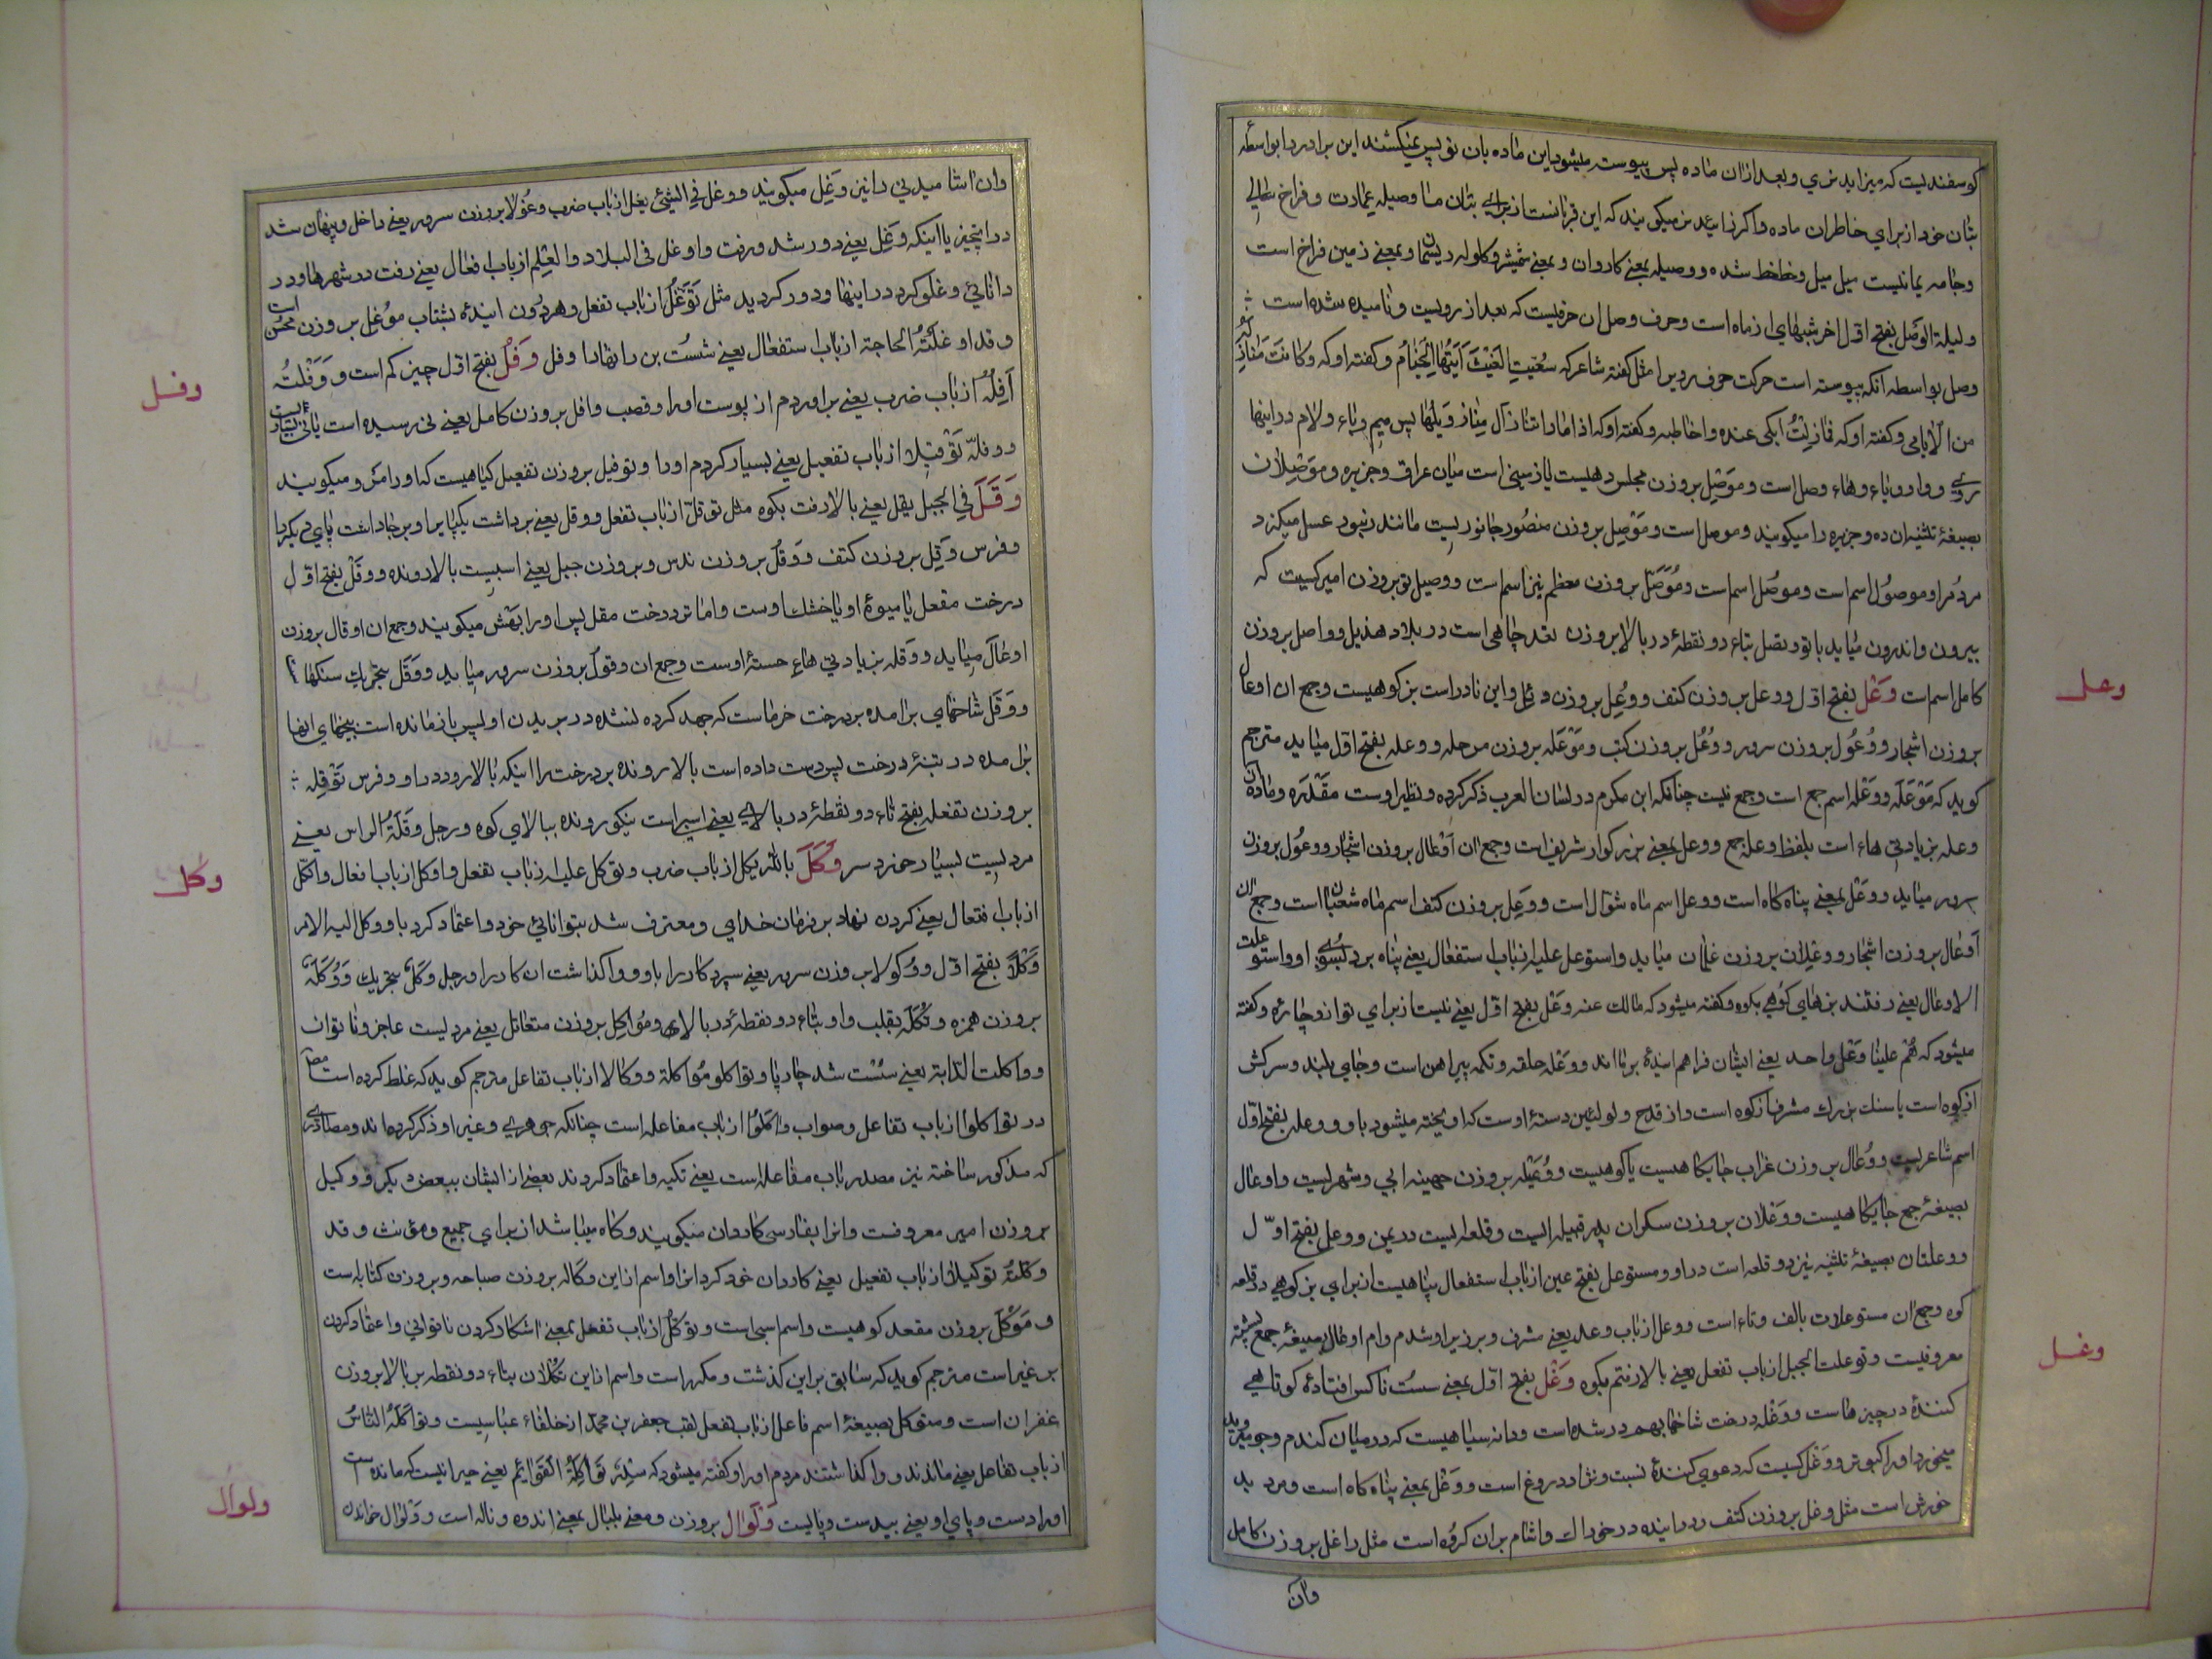 کوسفندیست که میزاید نری و بعد از ان ماده پس پیوسته میشود این ماده بان نو پس نمیکشند این برادر را بواسطه
بتان خود از برای خاطر ان ماده واکر زاییدند میکویند که این قربانست از برای بتان ما وصیله عمارت و فراخ سالی
وجامه یمانیست میل میل وخطخط شده ووصیله بمعنی کاروان و بمعنی شمشیر وکلوله ریشما وبمعنی زمین فراخ است
ولیلة الوصل بفتح اول اخر شبهای از ماه است وحرف وصل ان حرفیست که بعد از رویست ونامیده شده است
وصل بواسطه انکه پیوسته است حرکت حرف روی را مثل کفته شاعر که سقیت الغیث ایتها الخیام وکفته او که وکانت
من الایامی وکفته او که فما زلت ابکی عنده واخاطبه وکفته او که پس میم و یاء ولام در اینها
روی وواو ویاء وهاء وصل است وموصل بروزن مجلس دهیست یا زمینی است میان عراق وجزیره وموصلان
بصیغهٔ تثنیه ان ده وجزیره را میکویند وموصل است وموصل بروزن منصور جانوریست مانند زنبور عسل میکزد
مردم را وموصول اسم است وموصل اسم است وموصل بروزن معظم نیز اسم است ووصیل تو بروزن امیر کسیست که
بیرون واندرون میاید با تو وتصل بتاء دو نقطهٔ در بالا بروزن تعد چاهی است در بلاد هذیل وواصل بروزن
کامل اسم است وعل بفتح اول ووعل بروزن کتف ووعل بروزن دئل واین نادر است بز کوهیست وجمع ان اوعال
بروزن اشجار ووعول بروزن سرور ووعل بروزن کتب وموعله بروزن مرحله ووعله بفتح اول میاید مترجم
کوید که موعله ووعله اسم جمع است وجمع نیست چنانکه ابن مکرم در لسان العرب ذکر کرده ونظیر اوست مقدره وماده ان
وعله بزیادتی هاء است بلفظ وعله جمع ووعل بمعنی بزرکوار شریف است وجمع ان اوعال بروزن اشجار ووعول بروزن
سرور میاید ووعل بمعنی پناه کاه است ووعل اسم ماه شوال است ووعل بروزن کتف اسم ماه شعبان است وجمع ان
اوعال بروزن اشجار ووعلان بروزن غلمان میاید واستوعل علیه از باب استفعال یعنی پناه برد بسوی او واستوعلت
الاوعال یعنی رفتند بزهای کوهی بکوه وکفته میشود که مالک عنه وعل بفتح اول یعنی نیست از برای تو از او چاره وکفته
میشود که هم علینا وعل واحد یعنی ایشان فراهم ایندهٔ بر ما اند ووعله حلقه وتکمه پیراهن است وجای بلند وسرکش
از کوه است یا سنک بزرک مشرف از کوه است واز قدح ولولئین دستهٔ اوست که اویخته میشود باو ووعله بفتح اول
اسم شاعریست ووعال بروزن غراب جایکاهیست یا کوهیست ووعیله بروزن جهینه ابی وشهریست واوعال
بصیغهٔ جمع جایکاهیست ووعلان بروزن سکران پدر قبیله ایست وقلعه ایست در یمن ووعل بفتح اول
ووعلتان بصیغهٔ تثنیه نیز دو قلعه است در او ومستوعل بفتح عین از باب استفعال پناهیست از برای بز کوهی در قلعه
کوه وجمع ان مستوعلات بالف وتاء است ووعل از باب وعد یعنی مشرف وبرزیر او شدم وام اوعال بصیغهٔ جمع پشته
معروفیست وتوعلت الجبل از باب تفعل یعنی بالا رفتم بکوه وغل بفتح اول بمعنی سست ناکس افتادهٔ کوتاهی
کنندهٔ در چیزهاست ووغله درخت شاخها بهم در شده است ودانه سیاهیست که در میان کندم وجو میروید
میخورد او را کبوتر ووغل کسیست که دعوی کنندهٔ نسبت ونژاد دروغ است ووغل بمعنی پناه کاه است ومرد بد
خورش است مثل وغل بروزن کتف ودراینده در خوراک واشام بران کروه است مثل واغل بروزن کامل
وان
وعل
وغل
وان اشامیدنی را نیز وغل میکویند ووغل فی الشیئ یغل از باب ضرب وغولا بروزن سرور یعنی داخل وپنهان شد
در انچیز یا اینکه وغل یعنی دور شد ورفت واوغل فی البلاد والعلم از باب افعال یعنی رفت در شهرها ودر
دانائی وغلو کرد در اینها ودور کردید مثل توغل از باب تفعل وهر درون ایندهٔ بشتاب موغل بروزن محسن است
وقد اوغلته الحاجة از باب استفعال یعنی شست بن رانها را وفل وفل بفتح اول چیز کم است ووفلته
افله از باب ضرب یعنی براوردم از پوست او را وقصب وافل بروزن کامل یعنی نی رسیده است
ووفله توفیلا از باب تفعیل یعنی بسیار کردم او را وتوفیل بروزن تفعیل کیاهیست که او را مرو میکویند
وقل فی الجبل یقل یعنی بالا رفت بکوه مثل توقل از باب تفعل ووقل یعنی برداشت یکپا را وبرجا داشت پای دیکر را
وفرس وقل بروزن کتف ووقل بروزن ندس وبروزن جبل یعنی اسبیست بالا رونده ووقل بفتح اول
درخت مقل یا میوهٔ او یا خشک اوست واما تر درخت مقل پس او را بهش میکویند وجمع ان اوقال بروزن
اوعال میاید ووقله بزیادتی هاء حستهٔ اوست وجمع ان وقول بروزن سرور میاید ووقل بتحریک سنکهاء
ووقل شاخهای برامده بر درخت خرماست که جهد کرده نشده در بریدن او پس باز مانده است بیخهای انها
برامده در تنهٔ درخت پس دست داده است بالا رونده بر درخت را اینکه بالا رود در او وفرس توقله
بروزن تفعله بفتح تاء دو نقطهٔ در بالایی یعنی اسبی است نیکو رونده ببالای کوه ورجل وقلة الراس یعنی
مردیست بسیار خرد سر وکل بالله یکل از باب ضرب وتوکل علیه از باب تفعل واوکل از باب افعال واتکل
از باب افتعال یعنی کردن نهاد بر فرمان خدای ومعترف شد بتوانائی خود واعتماد کرد باو ووکل الیه الامر
وکلا بفتح اول ووکولا بروزن سرور یعنی سپرد کار را باو وواکذاشت ان کار را ورجل وکل بتحریک ووکلة
بروزن همزه وتکلة بقلب واو بتاء دو نقطهٔ در بالای ومواکل بروزن مقاتل یعنی مردیست عاجز وناتوان
وواکلت الدابة یعنی سست شد چارپا وتواکلوا مواکلة ووکالا از باب تفاعل مترجم کوید که غلط کرده است مص
در تواکلوا از باب تفاعل وصواب واکلوا از باب مفاعله است چنانکه جوهری وغیر او ذکر کرده اند ومصادری
که مذکور ساخته نیز مصدر باب مفاعله است یعنی تکیه واعتماد کردند بعضی از ایشان ببعض دیکر ووکیل
بروزن امیر معروفست وانرا بفارسی کاردان میکویند وکاه میباشد از برای جمیع ومؤنث وقد
وکلته توکیلا از باب تفعیل یعنی کاردان خود کرد انرا واسم از این وکاله بروزن صباحه وبروزن کتابه است
وموکل بروزن مقعد کوهیست واسم اسبی است وتوکل از باب تفعل بمعنی اشکار کردن ناتوانی واعتماد کردن
بر غیر است مترجم کوید که سابق بر این کذشت ومکرر است واسم از این تکلان بتاء دو نقطه بر بالا بروزن
غفران است ومتوکل بصیغهٔ اسم فاعل از باب تفعل لقب جعفر بن محمد از خلفاء عباسیست وتواکله الناس
از باب تفاعل یعنی ماندند وواکذاشتند مردم او را وکفته میشود که متواکلة القوائم یعنی حیرانیست که مانده ست
او را دست وپای او یعنی بیدست وپالیست ولوال بروزن ومعنی بلبال بمعنی اندوه وناله است وولوال خواندن
وفل
وکل
ولوال